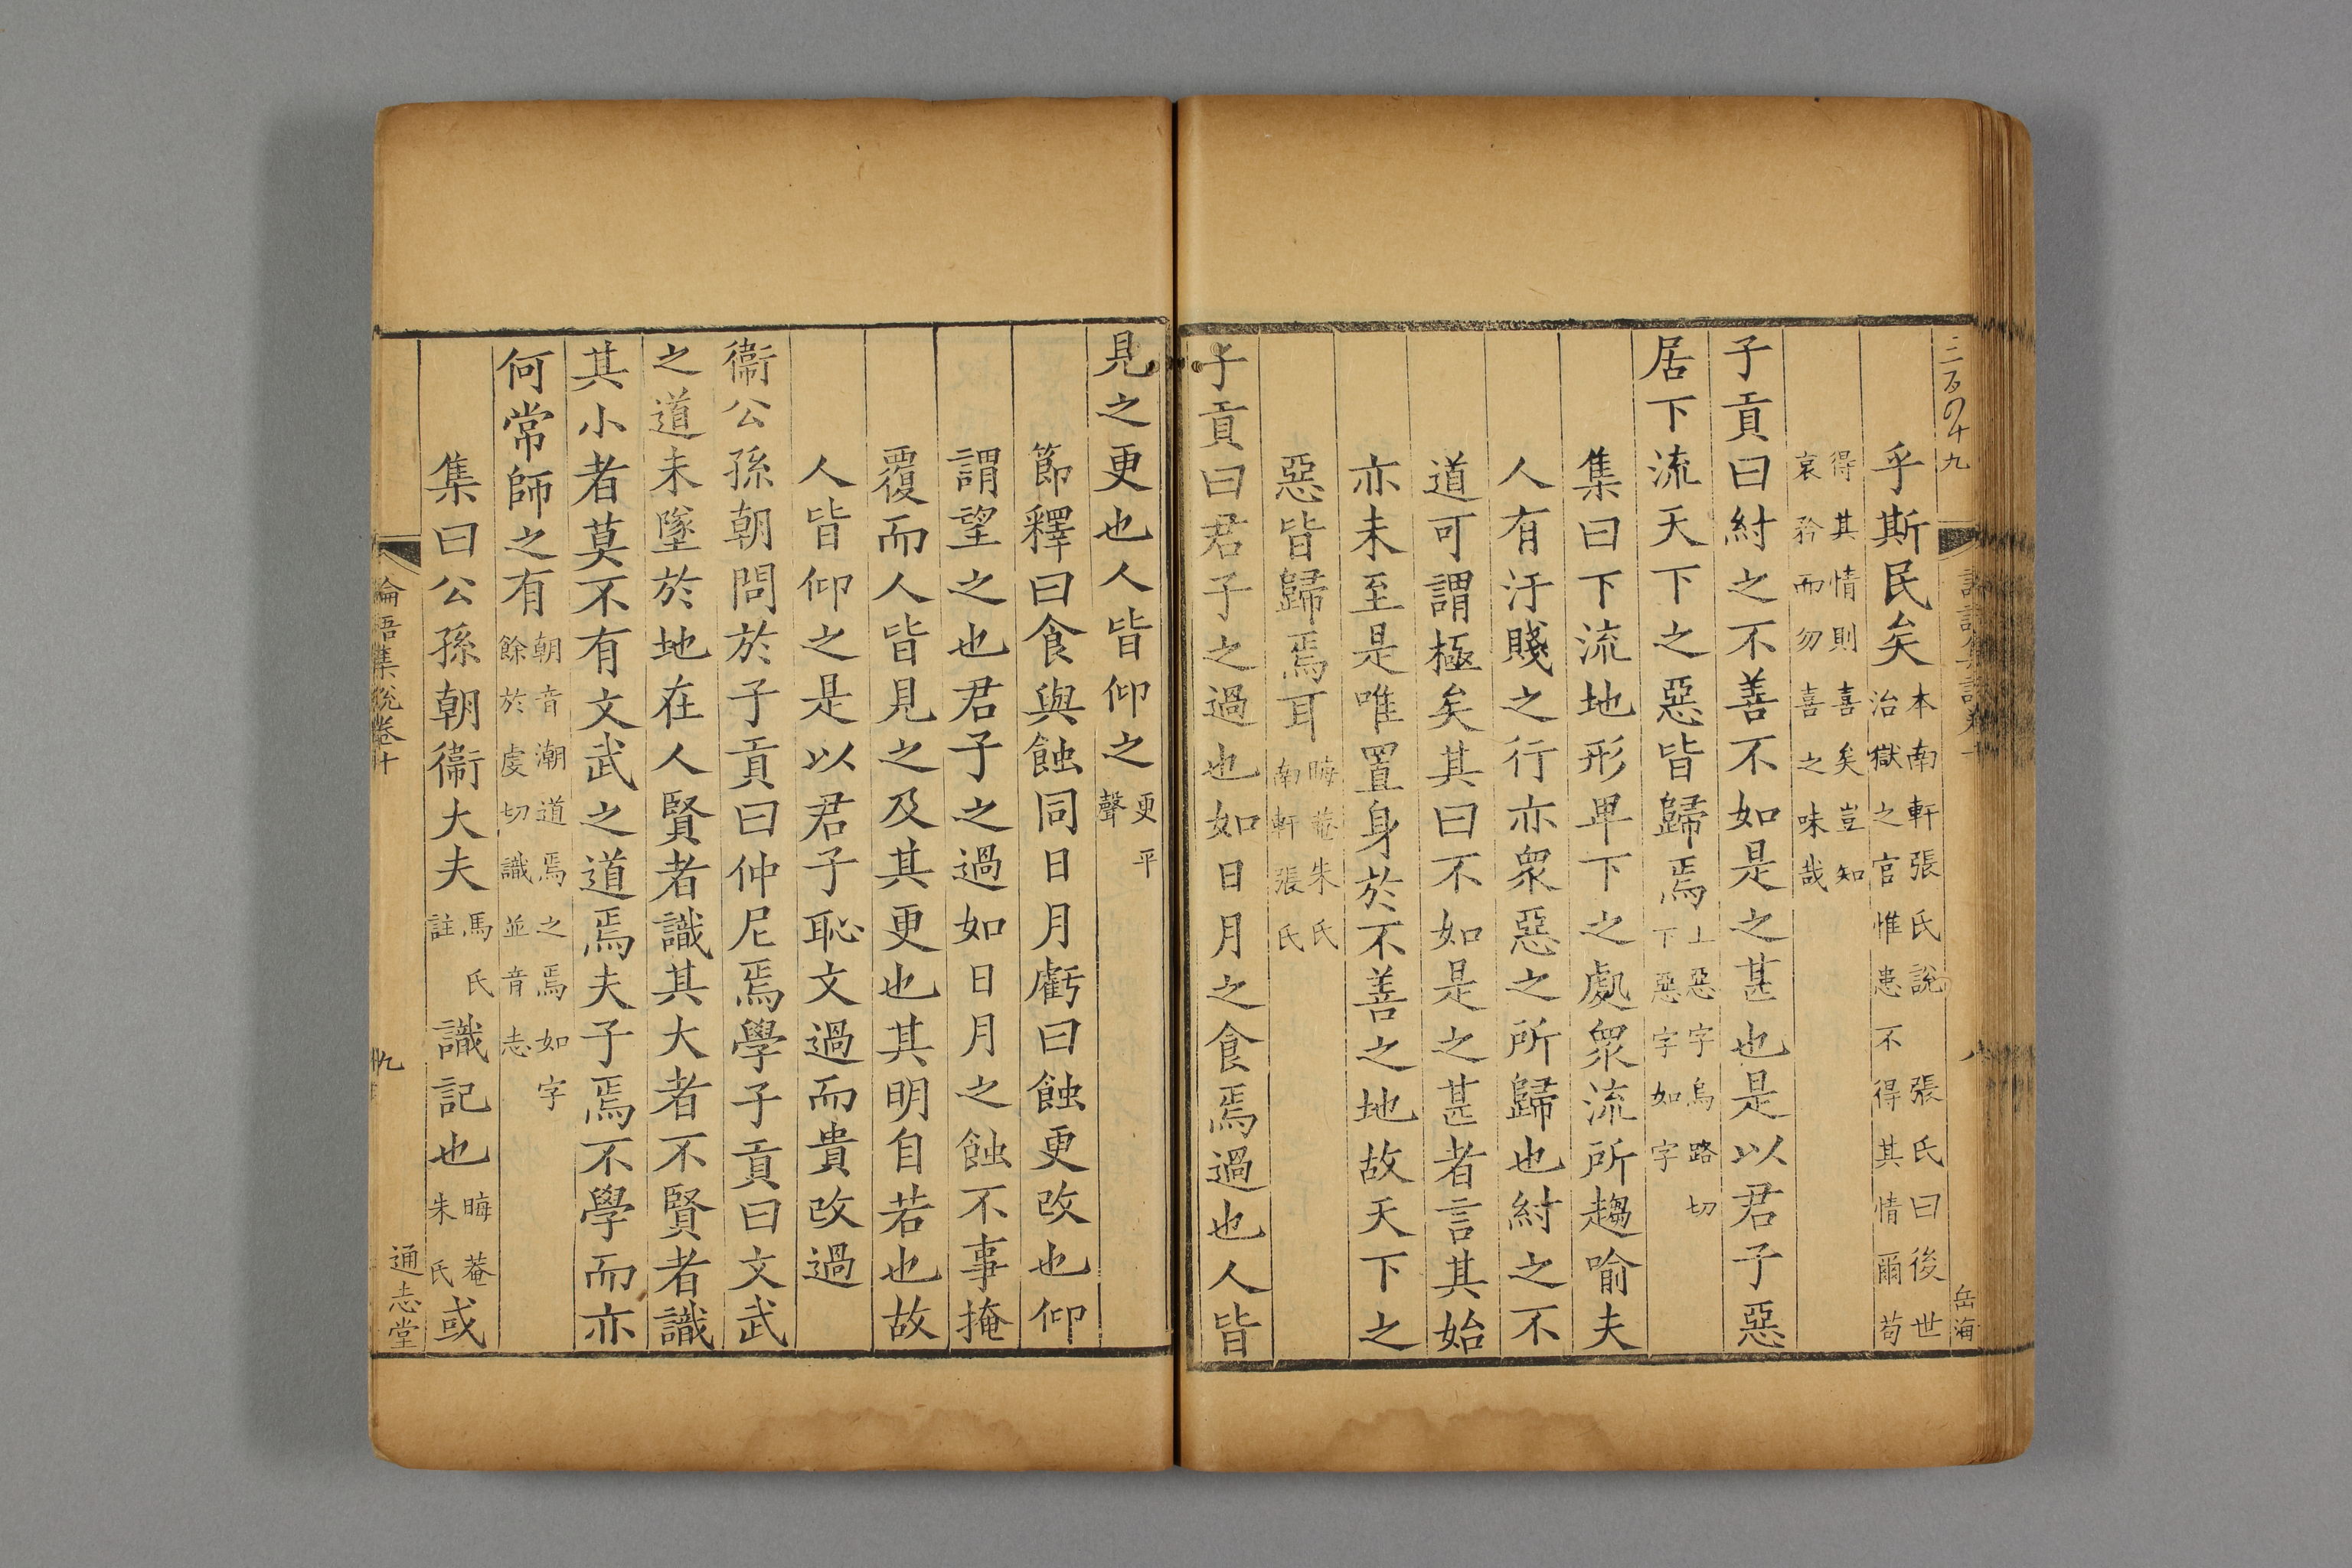 三百四十九
論語集說卷十
八
岳海
乎斯民矣本南軒張氏說 張氏曰後世治獄之官惟患不得其情爾苟
得其情則喜矣豈知哀矜而勿喜之味哉
子貢曰紂之不善不如是之甚也是以君子惡
居下流天下之惡皆歸焉上惡字烏路切下惡字如字
集曰下流地形卑下之處衆流所趨喻夫
人有汙賤之行亦衆惡之所歸也紂之不
道可謂極矣其曰不如是之甚者言其始
亦未至是唯置身於不善之地故天下之
惡皆歸焉耳晦菴朱氏南軒張氏
子貢曰君子之過也如日月之食焉過也人皆
見之更也人皆仰之更平聲
節釋曰食與蝕同日月虧曰蝕更改也仰
謂望之也君子之過如日月之蝕不事掩
覆而人皆見之及其更也其明自若也故
人皆仰之是以君子恥文過而貴改過
衞公孫朝問於子貢曰仲尼焉學子貢曰文武
之道未墜於地在人賢者識其大者不賢者識
其小者莫不有文武之道焉夫子焉不學而亦
何常師之有朝音潮道焉之焉如字餘於虔切識並音志
集曰公孫朝衞大夫馬氏註識記也晦菴朱氏或
論語集說卷十
九
通志堂